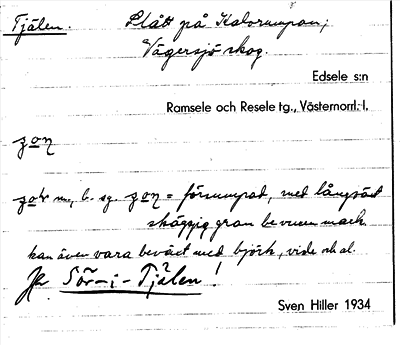 Tjälen. Slått på Kalorumpan,
Vägersjö skog.
Edsele s:n
Ramsele och Resele tg., Västernorrl. l.
zon
m., b. sg. zon = försumpad, med långväxt
skäggig gran bevuxen mark.
kan även vara beväxt med björk, vide och al.
Jfr Sör-i-Tjälen!
Sven Hiller 1934